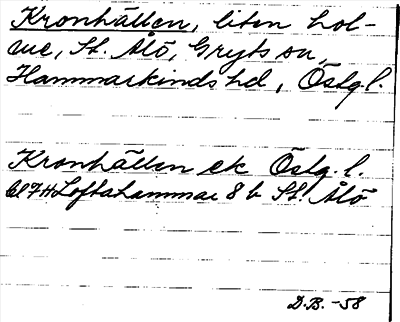 Kronhällen, liten hol-
me, St. Ålö, Gryts sn,
Hammarkinds hd, Östg.l.
Kronhällen ek Östg. l.
Loftahammar 8 b St. Ålö
D.B. -58